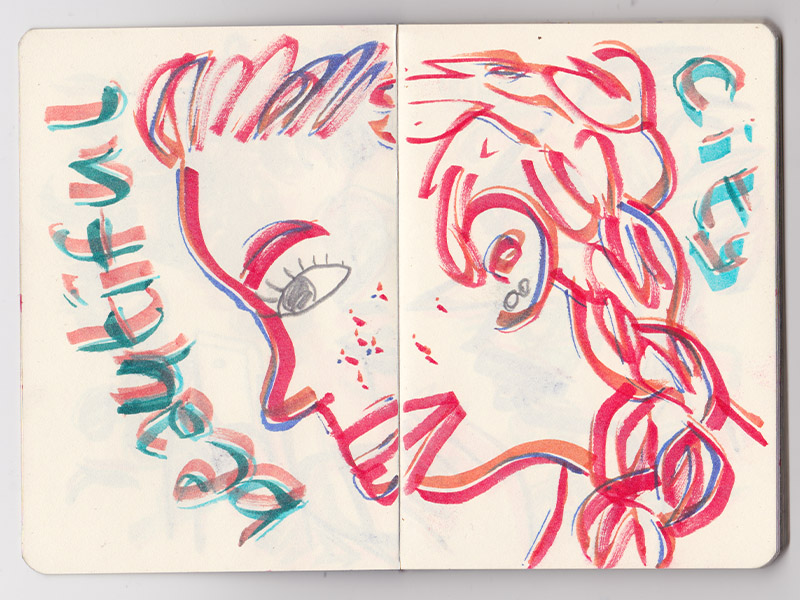 Beautiful
City